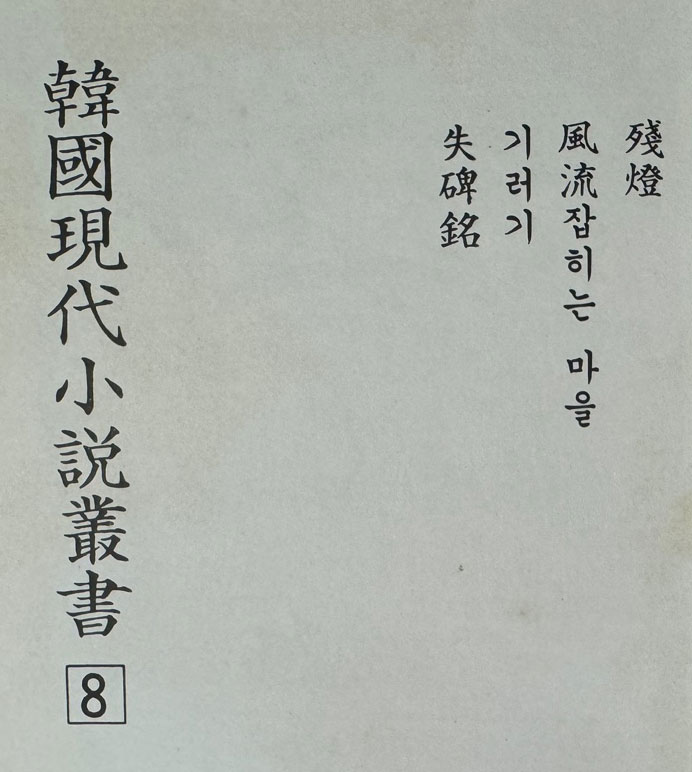 殘燈
風流잡히는 마을
기러기
失碑銘
韓國現代小說叢書
8